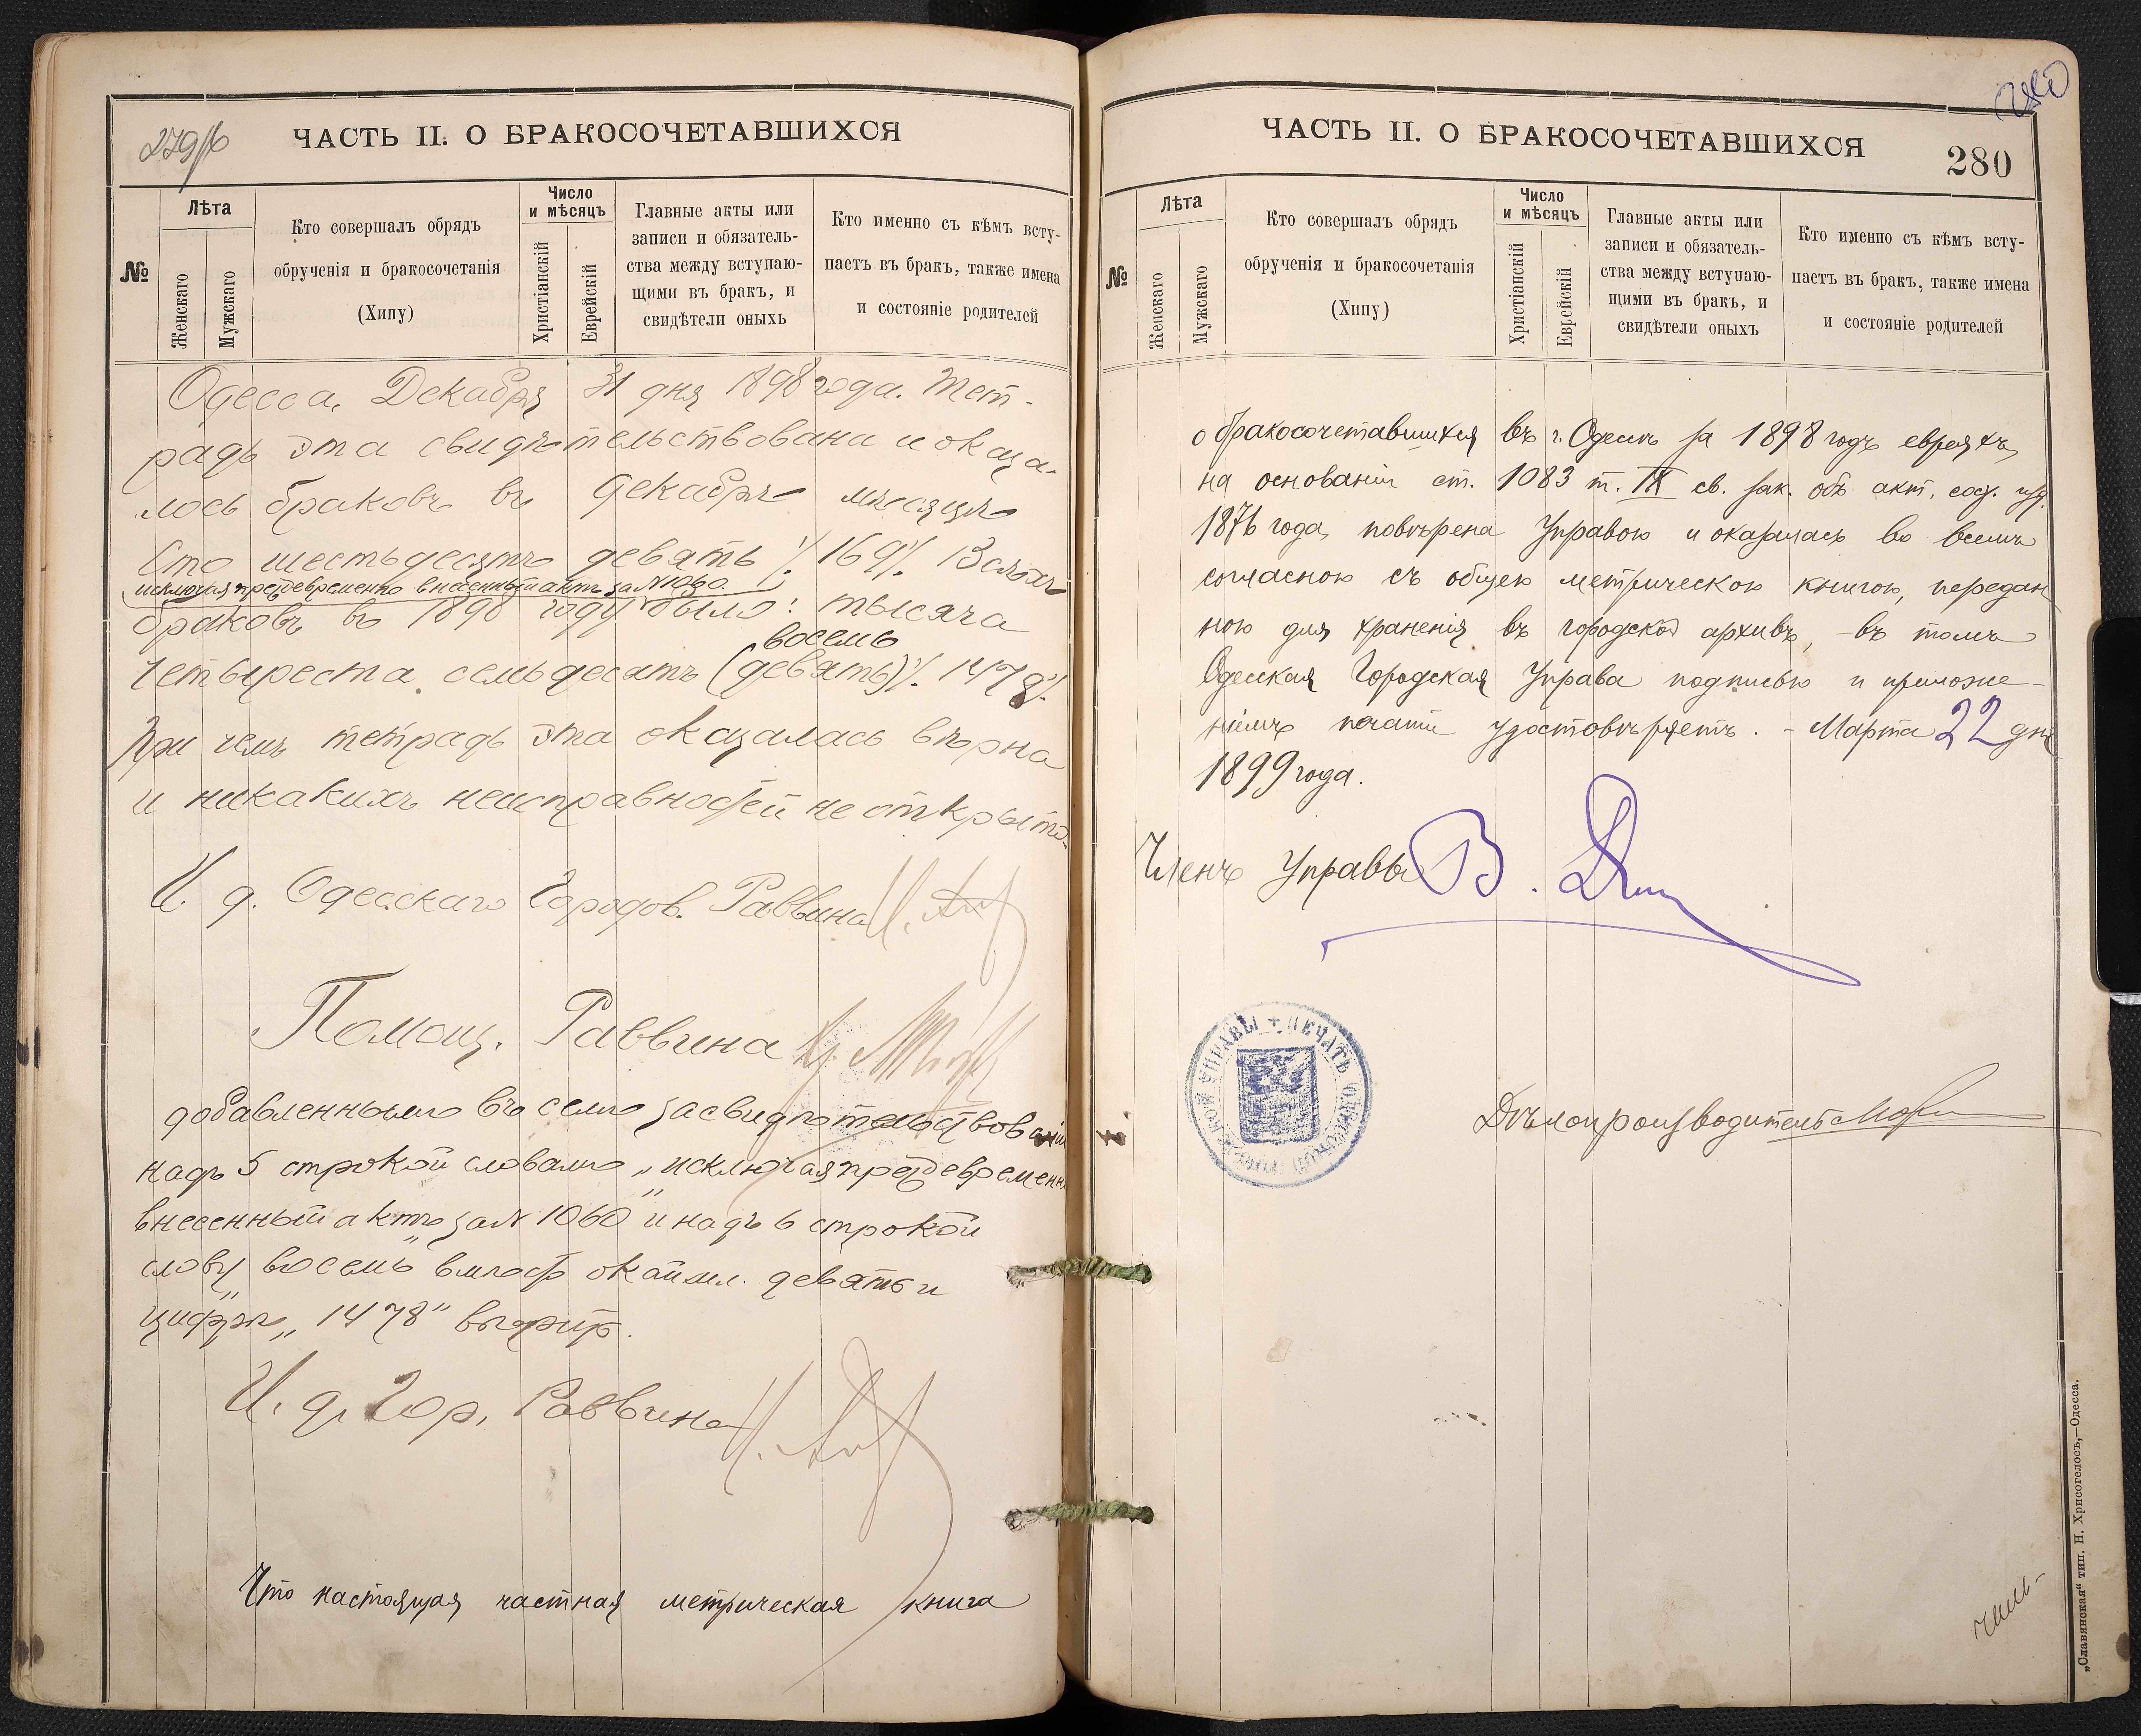 279/б
ЧАСТЬ II. О БРАКОСОЧЕТАВШИХСЯ
№
Лѣта
Женскаго
Мужскаго
Кто совершалъ обрядъ
обрученія и бракосочетанія
(Хипу)
Число
и мѣсяцъ
Христіанскій
Еврейскій
Главные акты или
записи и обязатель-
ства между вступаю-
щими въ бракъ, и
свидѣтели оныхъ
Кто именно съ кѣмъ всту-
паетъ въ бракъ, также имена
и состояніе родителей
Одесса, Декабря 31 дня 1898 года. Тет-
радь эта свидѣтельствована и оказа-
лось браковъ въ Декабрѣ мѣсяцѣ
Сто шестьдесятъ девять ./. 169 ./. Всѣхъ
исключая преждевременно внесенный актъ за № 1060
браковъ въ 1898 году было: тысяча
восемь
четыреста семьдесятъ (девять) ./. 1478 ./.
При чемъ тетрадь эта оказалась вѣрна
и никакихъ неисправностей не открыто.
И. д. Одесскаго Городов. Раввина
Помощ. Раввина
добавленнымъ въ семъ засвидѣтельствованіи
надъ 5 строкой словамъ „исключая преждевременно
внесенный актъ за № 1060“ и надъ 6 строкой
слову „восемь“ вмѣсто девять и
цифрѣ „1478“ вѣрить.
И. д. Гор. Раввина
Что настоящая частная метрическая книга
280
ЧАСТЬ II. О БРАКОСОЧЕТАВШИХСЯ
280
№
Лѣта
Женскаго
Мужскаго
Кто совершалъ обрядъ
обрученія и бракосочетанія
(Хипу)
Число
и мѣсяцъ
Христіанскій
Еврейскій
Главные акты или
записи и обязатель-
ства между вступаю-
щими въ бракъ, и
свидѣтели оныхъ
Кто именно съ кѣмъ всту-
паетъ въ бракъ, также имена
и состояніе родителей
о бракосочетавшихся въ г. Одессѣ за 1898 годъ евреяхъ,
на основаніи ст. 1083 т. IX св. зак. объ акт. сост. изд.
1876 года, повѣрена Управою и оказалась во всемъ
согласною съ общею метрическою книгою, передан
ною для храненія въ городской архивъ, – въ томъ
Одесская Городская Управа подписью и приложе-
ніемъ печати удостовѣряетъ. – Марта 22 дня
1899 года.
Членъ Управы В.
ПЕЧАТЬ ОДЕССКОЙ ГОРОДСКОЙ УПРАВЫ
Дѣлопроизводитель
„Славянская“ тип. Н. Хрисогелосъ,—Одесса.